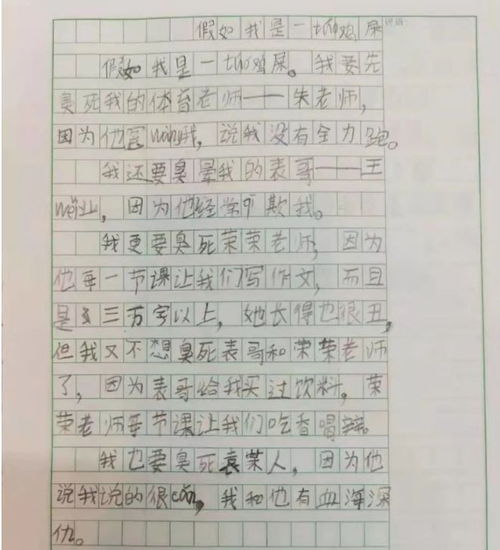 假如我是一tuó鸡屎
假如我是一tuó鸡屎。我要先
臭死我的体育老师——朱老师，
因为他冤wǎng我，说我没有全力跑。
我还要臭晕我的表哥——王
业，因为他经常欺我。
我更要臭死荣荣老师，因为
他每一节课让我们写作文，而且
是三万字以上，她长得也很丑，
但我又不想臭死表哥和荣荣老师
了，因为表哥给我买过饮料。荣
荣老师每节课让我们吃香喝辣。
我也要臭死袁某人，因为他
说我说的很，我和他有血海深
仇。